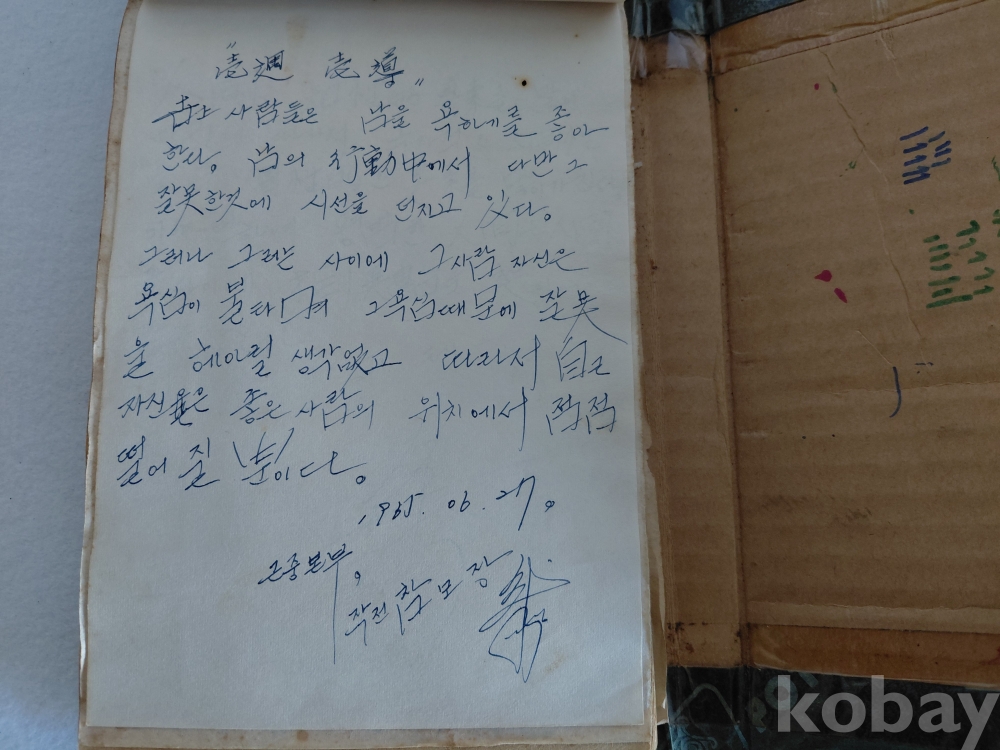 "壱週 壱導"
사람들은 남을 욕하네를 좋아
한다。 남의 行動中에서 다만 그
잘못한것에 시선을 던지고 있다。
그러나 그러는 사이에 그사람 자신은
욕심이 불타 그욕심때문에 잘못
을 헤아릴 생각없고 따라서 自己
자신은 좋은 사람의 위치에서
떨어 질 뿐이다。
1965. 06. 27。
본부,
작전 참모장
kobay